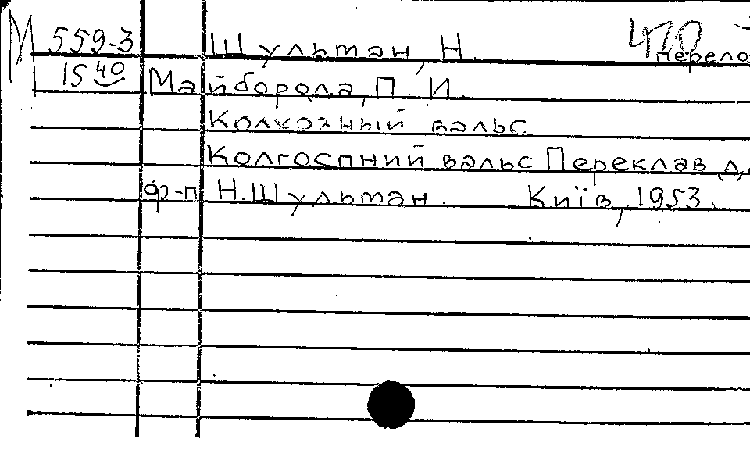 М 559-3 Шульман, Н. 470
15 40 Майборода, П. И.
Колхозный вальс
Колгоспний вальс Переклав д.
ф-п Н. Шульман. Київ, 1953.